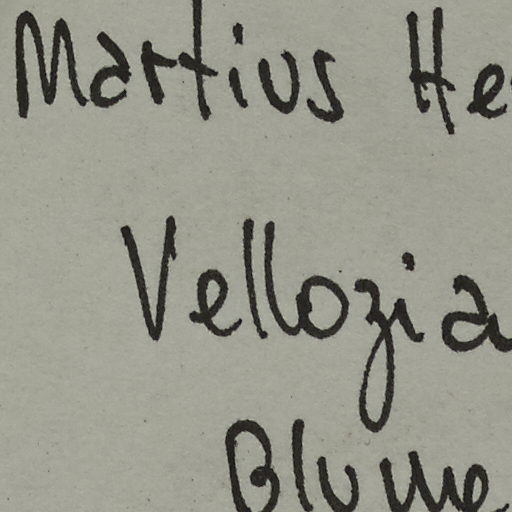 Martius He
Vellozia
Blume